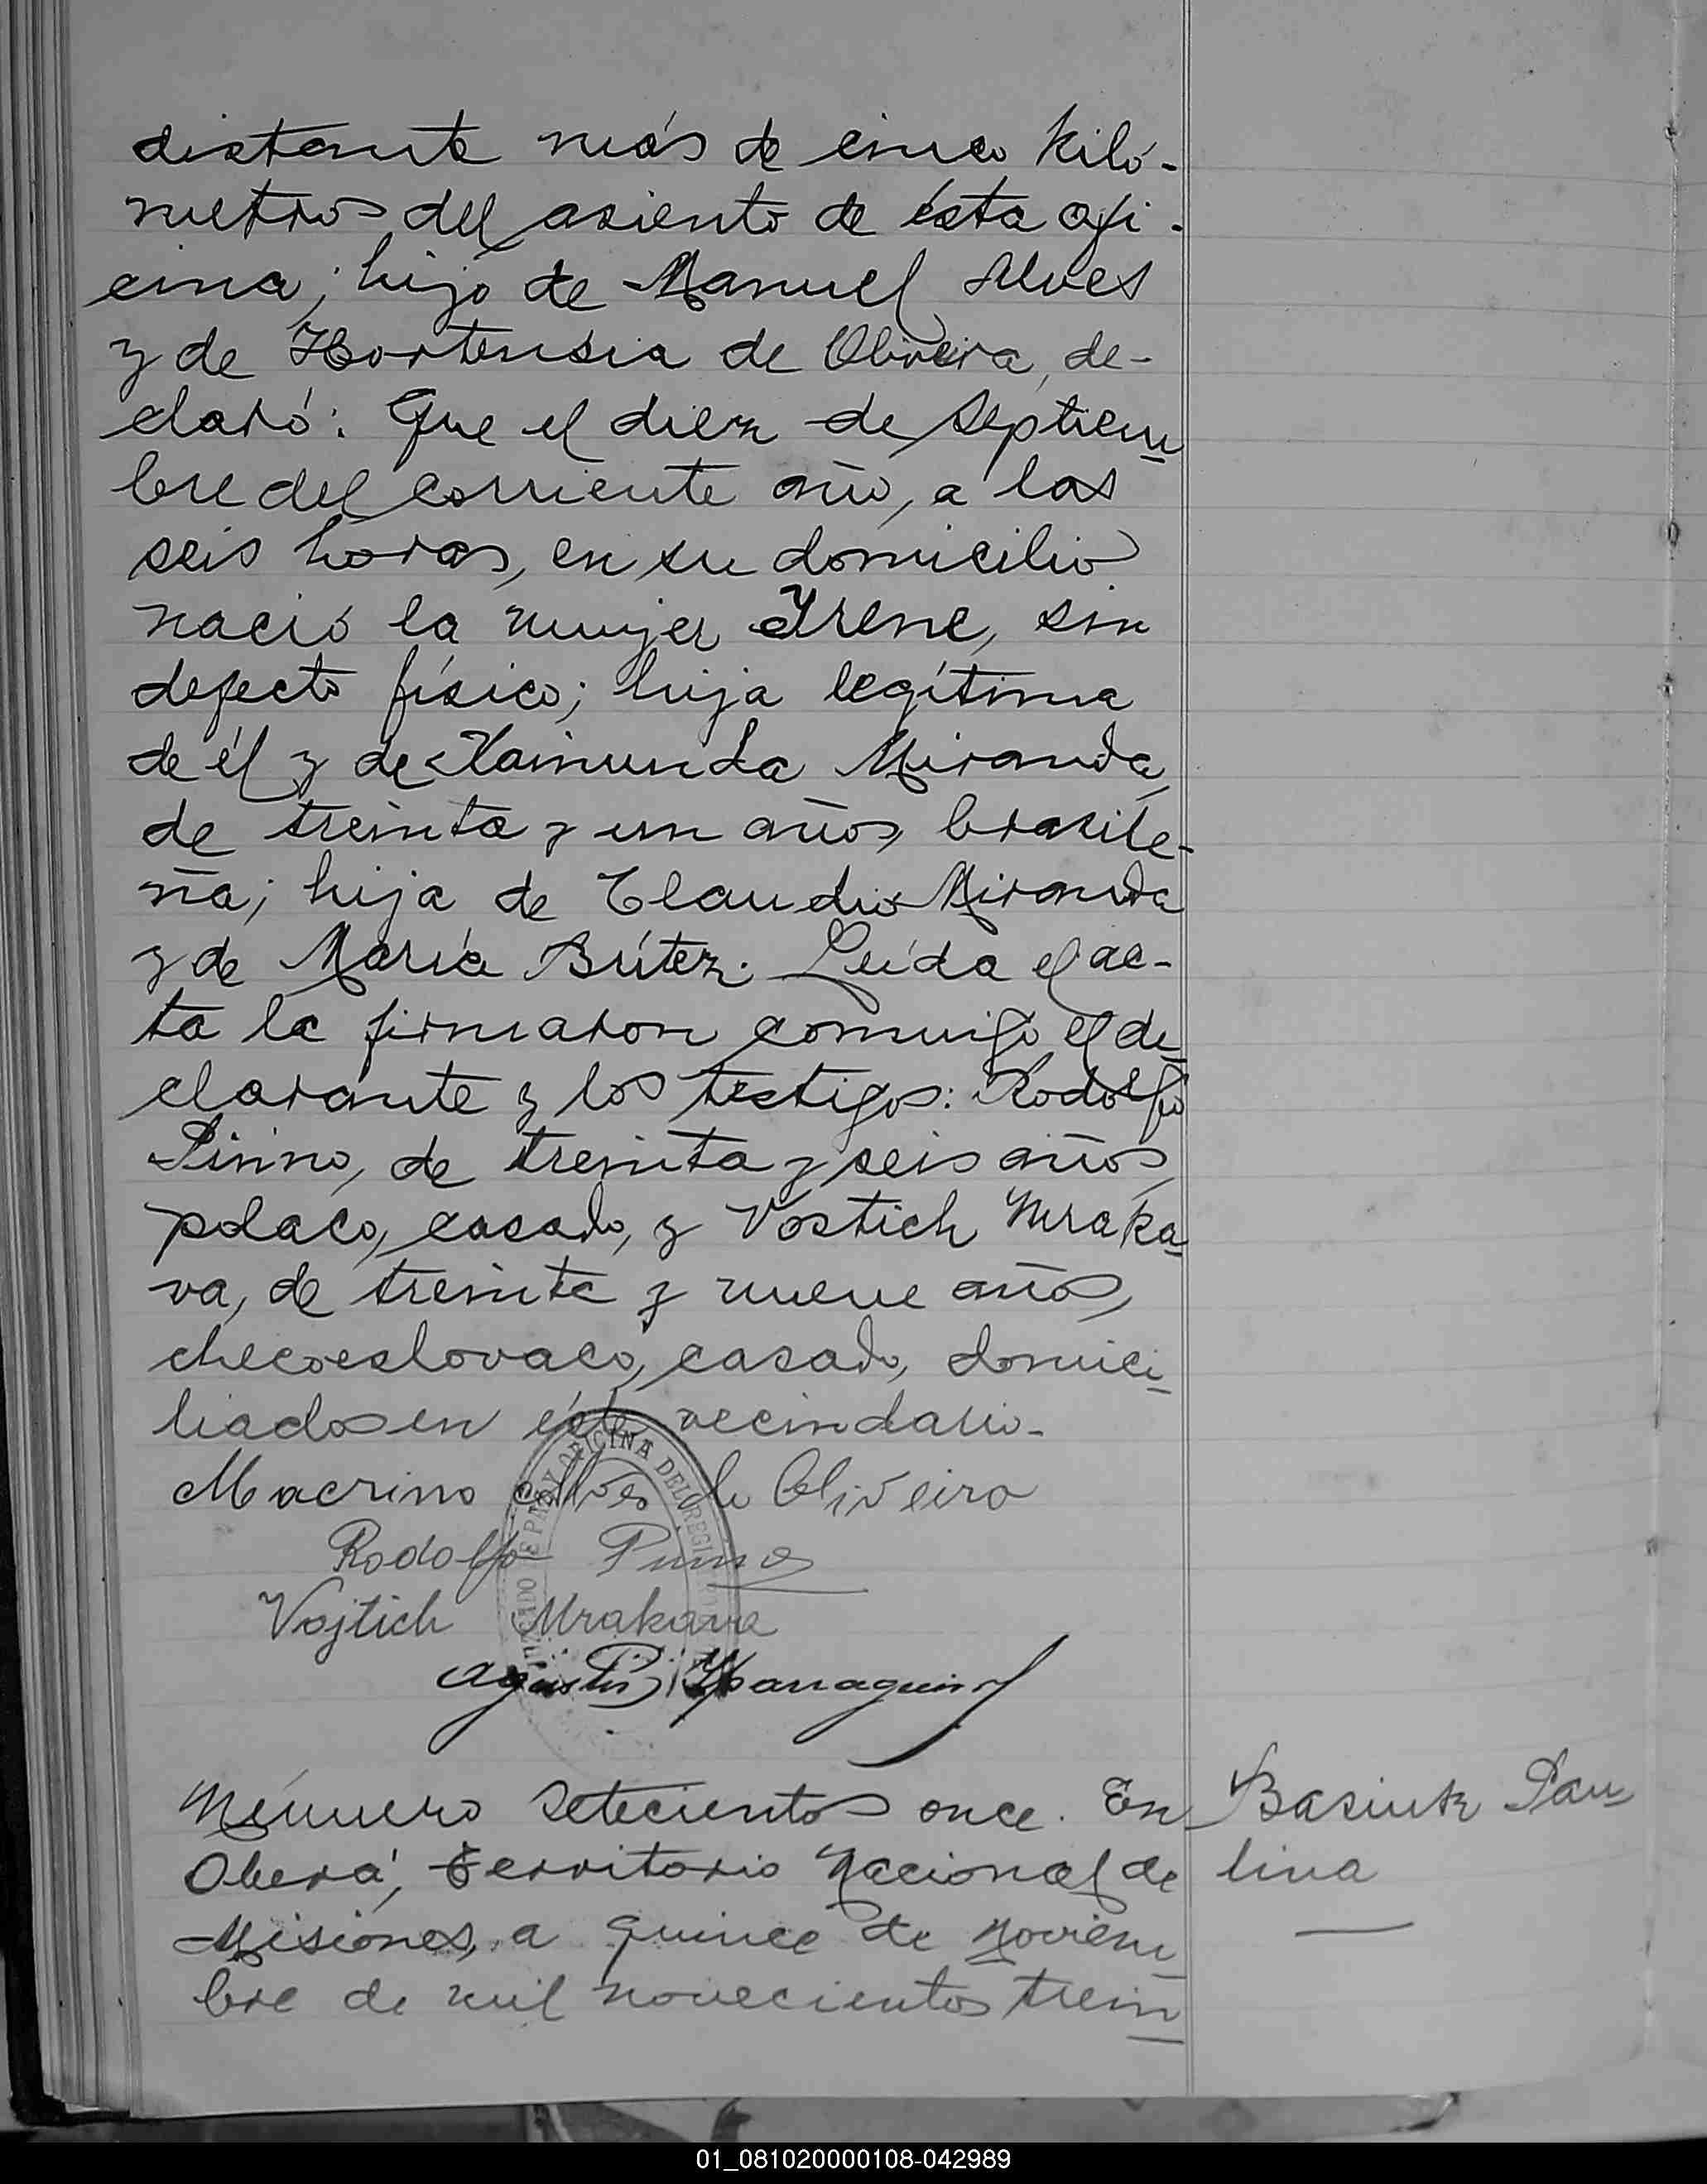 distante más de cinco kiló-
metros del asiento de ésta ofi-
cina; hijo de Manuel Alves
y de Hortensia de Oliveira, de-
claró: Que el diez de Septiem
bre del corriente año, a las
seis horas, en su domicilio
nació la mujer Irene, sin
defecto físico; hija legítima
de él y de Raimunda Miranda,
de treinta y un años, brasile-
ña; hija de Claudio Miranda
y de María Brítez. Leída el ac-
ta la firmaron conmigo el de
clarante y los testigos: Rodolfo
Pinno, de treinta y seis años,
polaco, casado, y Vostich Mraka
va, de treinta y nueve años,
checoeslovaco, casado, domici
liados en éste vecindario.-
Macrino Alves de Oliveira
Rodolfo
Vojtich Mrakava
OFICINA DEL REGI
Agustin
Número setecientos once. En
Oberá, Territorio Nacional de
Misiones, a quince de Noviem
bre de mil novecientos trein
Basiuk Pau
lina
01_081020000108-042989